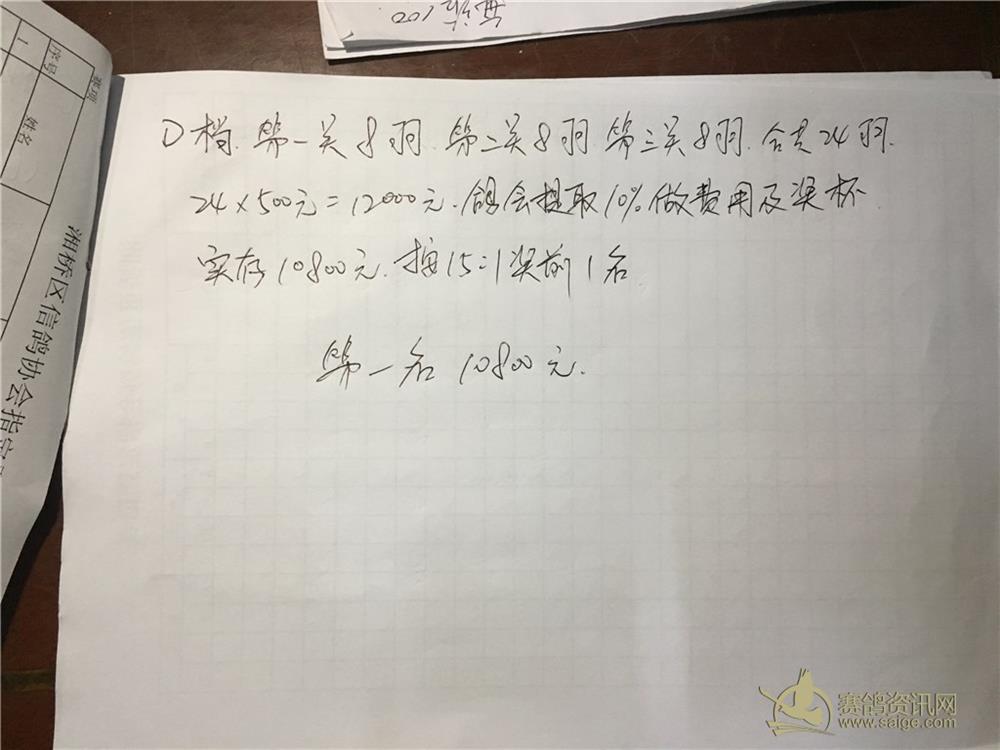 D档. 第一关8羽. 第二关8羽 第三关8羽. 合共24羽.
24×500元=12000元. 鸽会提取10%做费用及奖杯.
实存10800元. 按15:1奖前1名.
第一名 10800元.
湘桥区信鸽协会指定
奖项
序号
姓名
1
赛鸽资讯网
www.saige.com